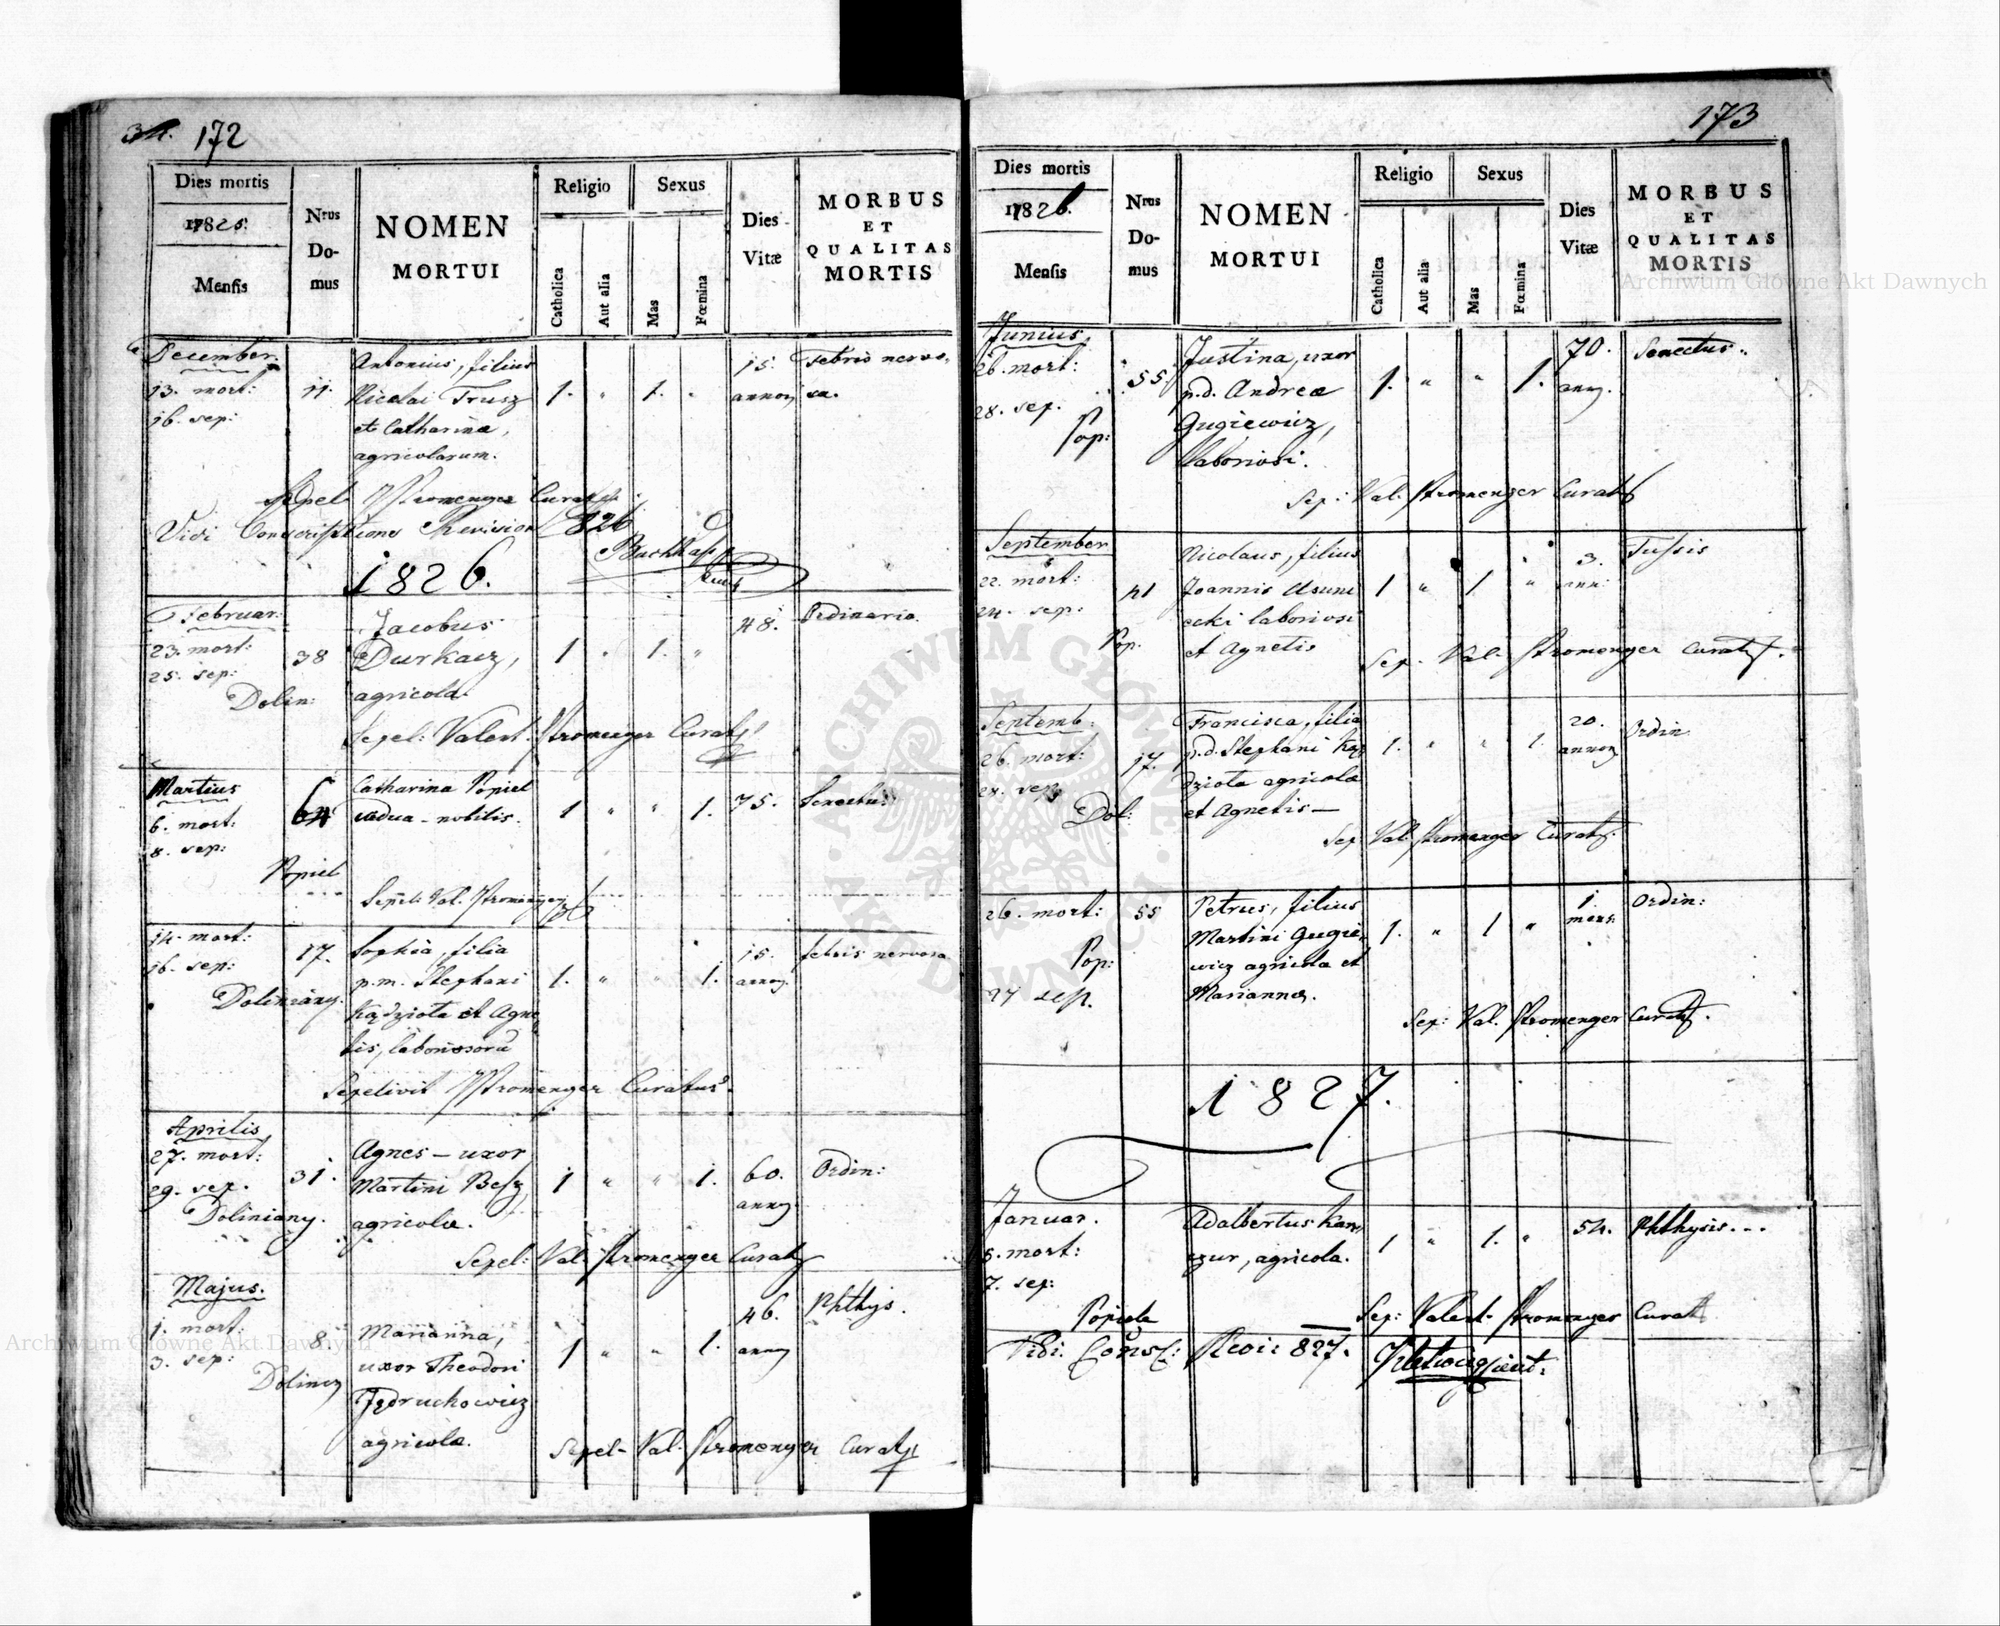 172
Dies mortis
Nrus Domus
NOMEN MORTUI
Religio
Sexus
Dies Vitæ
MORBUS ET QUALITAS MORTIS
1825.
Mensis
Catholica
Aut alia
Mas
Fœmina
December.
13. mort:
16. sep:
11.
Antonius, filius
Nicolai Trusz
et Catharinæ,
agricolarum.
1. " 1. "
15.
annor
Febris nervo-
sa.
Sepel. Stromenger Curatus
Vidi Conscriptione Revision 826
1826.
Februar:
23. mort:
25. sep:
Dolin:
38
Jacobus
Durkacz,
agricola.
1 " 1. "
48.
Ordinaria.
Sepel: Valent. Stromenger Curat
Martius
6. mort:
8. sep:
Popiel
64
Catharina Popiel
vidua - nobilis.
1 " " 1.
75.
Senectus
Sepel: Val. Stromenger
14. mort:
16. sep:
Doliniany.
17.
Sophia, filia
p.m. Stephani
Kędziota et Agne-
tis, laboriosorũ
1. " " 1.
15.
annor
febris nervosa
Sepelivit Stromenger Curatus.
Aprilis
27. mort:
29. sep.
Doliniany.
31.
Agnes - uxor
Martini Besz,
agricolæ.
1 " " 1.
60.
annor
Ordin:
Sepel: Val. Stromenger Curat
Majus.
1. mort:
3. sep:
8.
Marianna,
uxor Theodori
Jędruchowicz
agricolæ.
1 " " 1.
46.
annor
Phthys.
Sepel- Val. Stromenger Curat
173
Dies mortis
Nrus Domus
NOMEN MORTUI
Religio
Sexus
Dies Vitæ
MORBUS ET QUALITAS MORTIS
1826.
Mensis
Catholica
Aut alia
Mas
Fœmina
Junius,
26. mort:
28. sep.
Pop:
55.
Justina, uxor
p.d. Andreæ
Gugiewicz,
laboriosi.
1. " " 1.
70.
ann.
Senectus.
Sep: Val. Stromenger Curat
September
22. mort:
24. sep:
Pop.
41
Nicolaus, filius
Joannis
laboriosi
et Agnetis
1 " 1 "
3.
ann:
Tussis
Sep. Val. Stromenger Curat.
Septemb:
26. mort:
28. sep.
Dol:
17.
Francisca, filia
p.d. Stephani Kę-
dziota agricolæ
et Agnetis —
1. " " 1.
20.
annor
Ordin.
Sep: Val. Stromenger Curat.
26. mort:
Pop:
27 sep.
55
Petrus, filius
Martini Gugie-
wicz agricola et
Mariannæ.
1. " 1 "
1.
mens.
Ordin:
Sep: Val. Stromenger Curat.
1827.
Januar.
5. mort:
7. sep:
Popiele
Adalbertus Kan-
czur, agricola.
1 " 1. "
54.
Phthysis...
Sep: Valent. Stromenger Curat
Vidi Consc: Revi: 827.
Archiwum Główne Akt Dawnych
Archiwum Główne Akt Dawnych
ARCHIWUM GŁÓWNE AKT DAWNYCH